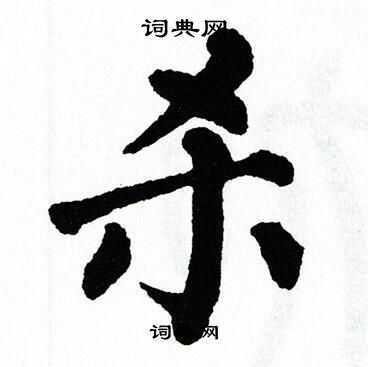 词典网
杀
词典网